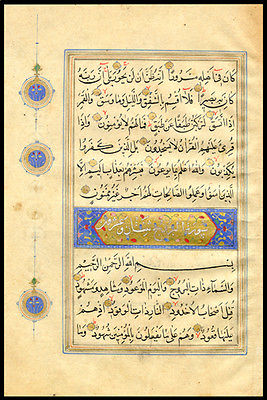 كان في أهله مسرورا إنه ظن أن لن يحور بلى إن ربه
كان به بصيرا فلا أقسم بالشفق والليل وما وسق والقمر
إذا اتسق لتركبن طبقا عن طبق فما لهم لا يؤمنون وإذا
قرئ عليهم القرآن لا يسجدون بل الذين كفروا
يكذبون والله أعلم بما يوعون فبشرهم بعذاب أليم إلا
الذين آمنوا وعملوا الصالحات لهم أجر غير ممنون
سورة البروج
بسم الله الرحمن الرحيم
والسماء ذات البروج واليوم الموعود وشاهد ومشهود
قتل أصحاب الأخدود النار ذات الوقود إذ هم
عليها قعود وهم على ما يفعلون بالمؤمنين شهود وما